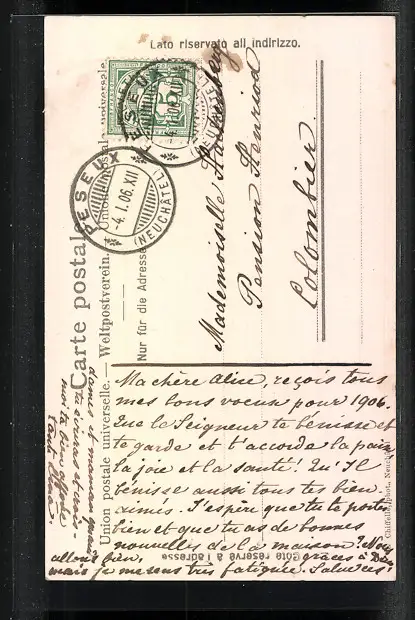 Lato riservato all indirizzo.
Carte postale
Union postale universelle. — Weltpostverein. Unione postale universale
Nur für die Adresse
5
PESEUX
-4.1.06.XII
(NEUCHÂTEL)
Mademoiselle
Pension Henriod
Colombier
Ma chère Alice, reçois tous
mes bons voeux pour 1906.
Que le Seigneur te bénisse et
te garde et t'accorde la paix
la joie et la santé! Qu'Il
bénisse aussi tous tes bien-
aimés. J'espère que tu te portes
bien et que tu as de bonnes
nouvelles de la maison? Nous
allons bien, grâces à Dieu
mais je me sens très fatiguée. Salue
Côté réservé à l'adresse